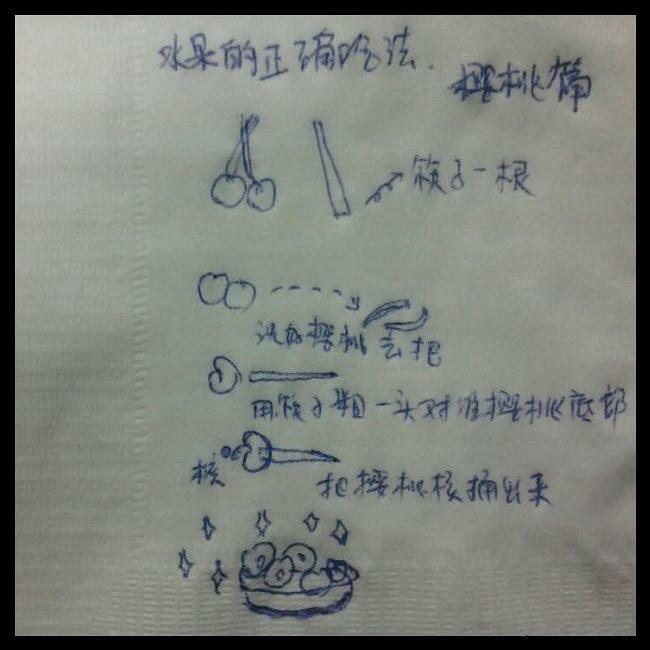 水果的正确吃法.
樱桃篇
筷子一根
洗好樱桃 去把
用筷子粗一头对准樱桃底部
核
把樱桃核捅出来